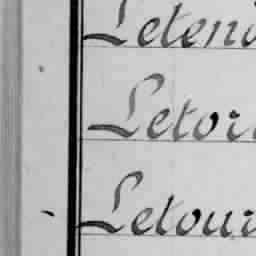 Letend
Letor
Letour